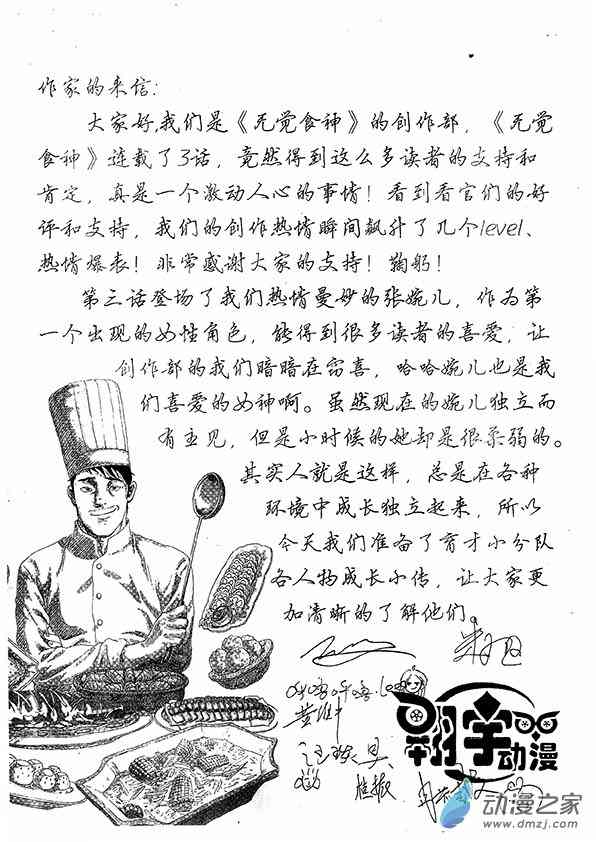 作家的来信:
大家好,我们是《无觉食神》的创作部，《无觉
食神》连载了3话，竟然得到这么多读者的支持和
肯定，真是一个激动人心的事情！看到看官们的好
评和支持，我们的创作热情瞬间飙升了几个level、
热情爆表！非常感谢大家的支持！鞠躬！
第三话登场了我们热情曼妙的张婉儿，作为第
一个出现的女性角色，能得到很多读者的喜爱，让
创作部的我们暗暗在窃喜，哈哈婉儿也是我
们喜爱的女神啊。虽然现在的婉儿独立而
有主见，但是小时候的她却是很柔弱的。
其实人就是这样，总是在各种
环境中成长独立起来，所以
今天我们准备了育才小分队
各人物成长小传，让大家更
加清晰的了解他们。
翔宇动漫
动漫之家
www.dmzj.com